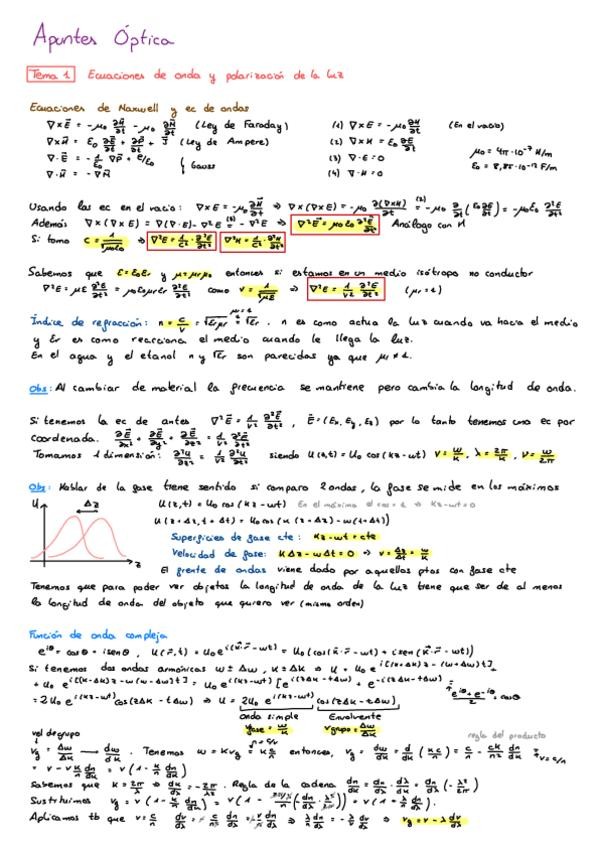 Apuntes Óptica
Tema 1 Ecuaciones de onda y polarización de la luz
Ecuaciones de Maxwell y ec de ondas
∇×E⃗ = -μ₀ ∂H⃗/∂t - μ₀ ∂M⃗/∂t (Ley de Faraday) (1) ∇×E = -μ₀ ∂H/∂t (En el vacío)
∇×H⃗ = ε₀ ∂E⃗/∂t + ∂P⃗/∂t + J⃗ (Ley de Ampere) (2) ∇×H = ε₀ ∂E/∂t
μ₀ = 4π·10⁻⁷ H/m
∇·E⃗ = -1/ε₀ ∇P⃗ + ρ/ε₀ Gauss (3) ∇·E = 0
∇·H⃗ = -∇M⃗ (4) ∇·H = 0
Usando las ec en el vacío: ∇×E = -μ₀ ∂H⃗/∂t ⇒ ∇×(∇×E) = -μ₀ ∂(∇×H)/∂t =⁽²⁾ -μ₀ ∂/∂t (ε₀ ∂E/∂t) = -μ₀ε₀ ∂²E/∂t²
Además ∇×(∇×E) = ∇(∇·E) - ∇²E =⁽³⁾ -∇²E ⇒ ∇²E⃗ = μ₀ε₀ ∂²E⃗/∂t² Análogo con H
Si tomo c = 1/√μ₀ε₀ ⇒ ∇²E = 1/c² · ∂²E/∂t² ∇²H = 1/c² · ∂²H/∂t²
Sabemos que ε = ε₀εr y μ = μrμ₀ entonces si estamos en un medio isótropo no conductor
∇²E = με ∂²E/∂t² = μ₀ε₀μrεr ∂²E/∂t² como v = 1/√με ⇒ ∇²E = 1/v² ∂²E/∂t² (μr = 1)
Índice de refracción: n = c/v = √εrμr =^(μr=1) √εr. n es como actua la luz cuando va hacia el medio
y εr es como reacciona el medio cuando le llega la luz.
En el agua y el etanol n y √εr son parecidas ya que μr ≠ 1.
Obs: Al cambiar de material la frecuencia se mantiene pero cambia la longitud de onda.
Si tenemos la ec de antes ∇²E⃗ = 1/v² ∂²E⃗/∂t², E⃗ = (Ex, Ey, Ez) por lo tanto tenemos una ec por
coordenada. ∂E⃗/∂x² + ∂E⃗/∂y² + ∂E⃗/∂z² = 1/v² ∂²E⃗/∂t²
Tomamos 1 dimensión: ∂²u/∂z² = 1/v² ∂²u/∂t² siendo u(z,t) = u₀ cos(kz-wt) v = w/k, λ = 2π/k, ν = w/2π
Obs: Hablar de la fase tiene sentido si comparo 2 ondas, la fase se mide en los máximos
u Δz u(z,t) = u₀ cos(kz-wt) En el máximo el cos = 1 ⇒ kz-wt=0
u(z+Δz, t+Δt) = u₀ cos(k(z+Δz) - w(t+Δt))
Superficies de fase cte: kz-wt = cte
Velocidad de fase: kΔz - wΔt = 0 ⇒ v = Δz/Δt = w/k
z El frente de ondas viene dado por aquellos ptos con fase cte
Tenemos que para poder ver objetos la longitud de onda de la luz tiene que ser de al menos
la longitud de onda del objeto que quiero ver (mismo orden)
Función de onda compleja
e^(iθ) = cosθ + isenθ, u(r⃗,t) = u₀e^(i(k⃗·r⃗-wt)) = u₀(cos(k⃗·r⃗-wt) + isen(k⃗·r⃗-wt))
Si tenemos dos ondas armónicas w±Δw, k±Δk ⇒ u = u₀e^(i[(k+Δk)z-(w+Δw)t]) +
+ u₀e^(i[(k-Δk)z-(w-Δw)t]) = u₀e^(i(kz-wt)) [e^(i(zΔk-tΔw)) + e^(-i(zΔk-tΔw))] =
= 2u₀e^(i(kz-wt)) cos(zΔk-tΔw) ⇒ u = 2u₀e^(i(kz-wt)) cos(zΔk-tΔw) (e^(iθ)+e^(-iθ))/2 = cosθ
onda simple Envolvente
vfase = w/k vgrupo = Δw/Δk
vel de grupo regla del producto
vg = Δw/Δk → dw/dk. Tenemos w = kv = k c/n entonces, vg = dw/dk = d/dk (kc/n) = c/n - ck/n² dn/dk = v=c/n
= v - v k/n dn/dk = v(1 - k/n dn/dk)
Sabemos que k = 2π/λ ⇒ dk/dλ = -2π/λ². Regla de la cadena dn/dk = dn/dλ · dλ/dk = dn/dλ (-λ²/2π)
Sustituimos vg = v(1 - k/n dn/dk) = v(1 - (dn/dλ · λ²)) = v(1 + λ/n dn/dλ).
Aplicamos tb que v = c/n dv/dλ = -c/n² dn/dλ = -v/n dn/dλ ⇒ λ/n dn/dλ = -λ/v dv/dλ ⇒ vg = v - λ dv/dλ